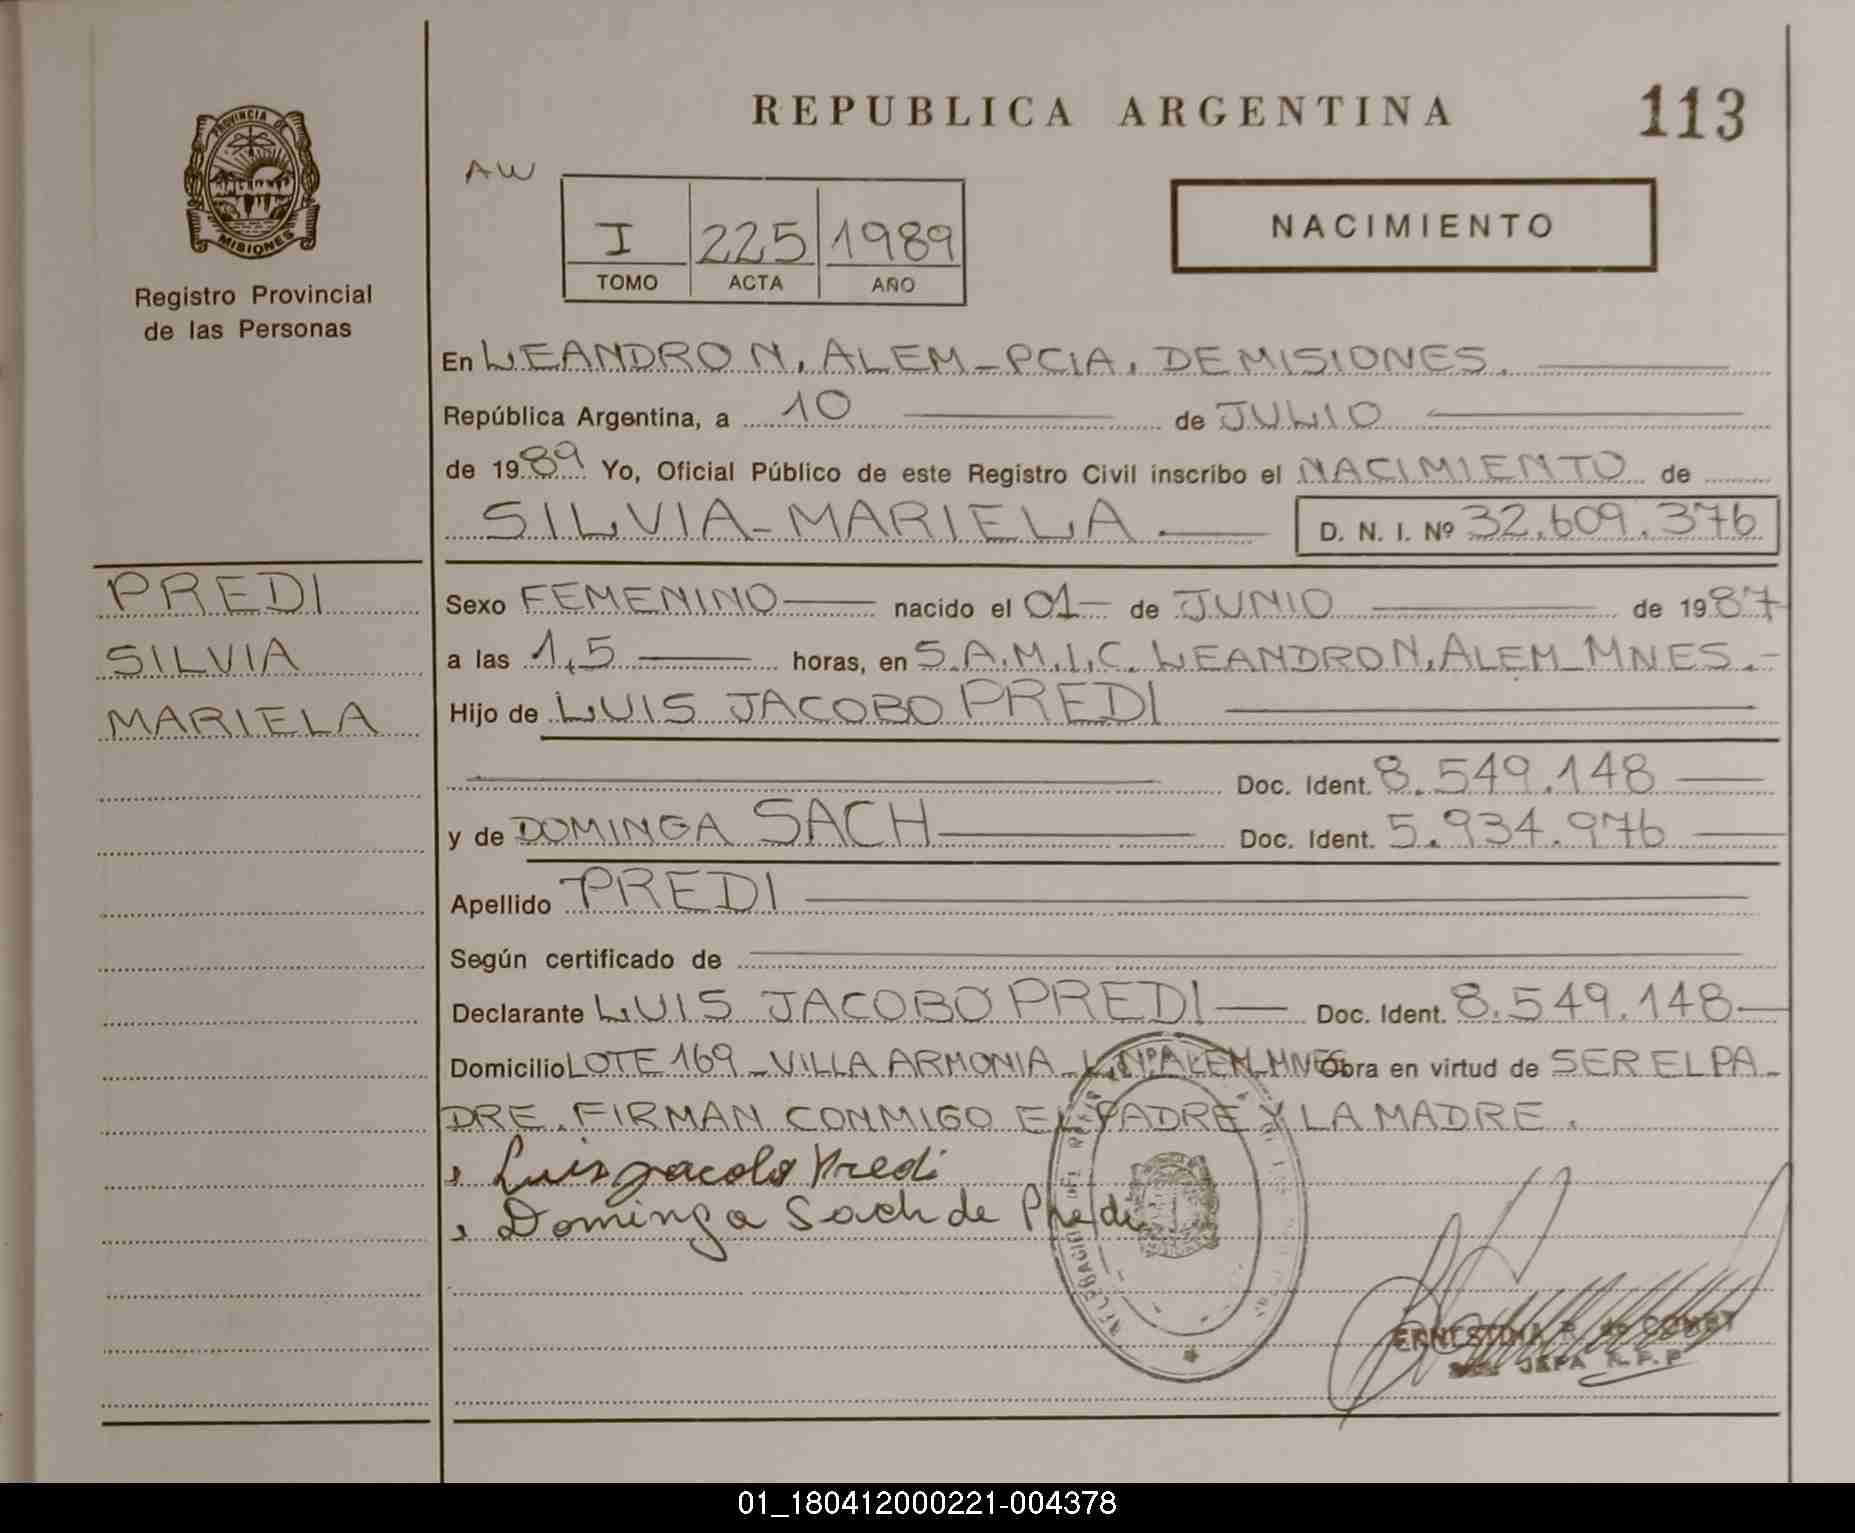 REPUBLICA ARGENTINA
113
PROVINCIA DE
MISIONES
Registro Provincial
de las Personas
AW
I 225 1989
TOMO ACTA AÑO
NACIMIENTO
En LEANDRO N. ALEM - PCIA. DE MISIONES.
República Argentina, a 10 de JULIO
de 1989 Yo, Oficial Público de este Registro Civil inscribo el NACIMIENTO de
SILVIA - MARIELA. D. N. I. Nº 32.609.376
PREDI
SILVIA
MARIELA
Sexo FEMENINO nacido el 01 de JUNIO de 1987
a las 1,5 horas, en S.A.M.I.C. LEANDRO N. ALEM - MNES. -
Hijo de LUIS JACOBO PREDI
Doc. Ident. 8.549.148
y de DOMINGA SACH Doc. Ident. 5.934.976
Apellido PREDI
Según certificado de
Declarante LUIS JACOBO PREDI Doc. Ident. 8.549.148
Domicilio LOTE 169 - VILLA ARMONIA - L. N. ALEM - MNES Obra en virtud de SER EL PA-
DRE. FIRMAN CONMIGO EL PADRE Y LA MADRE.
Luis Jacobo Predi
Dominga Sach de Predi
ERNESTINA R. de
JEFA R.P.P
01_180412000221-004378